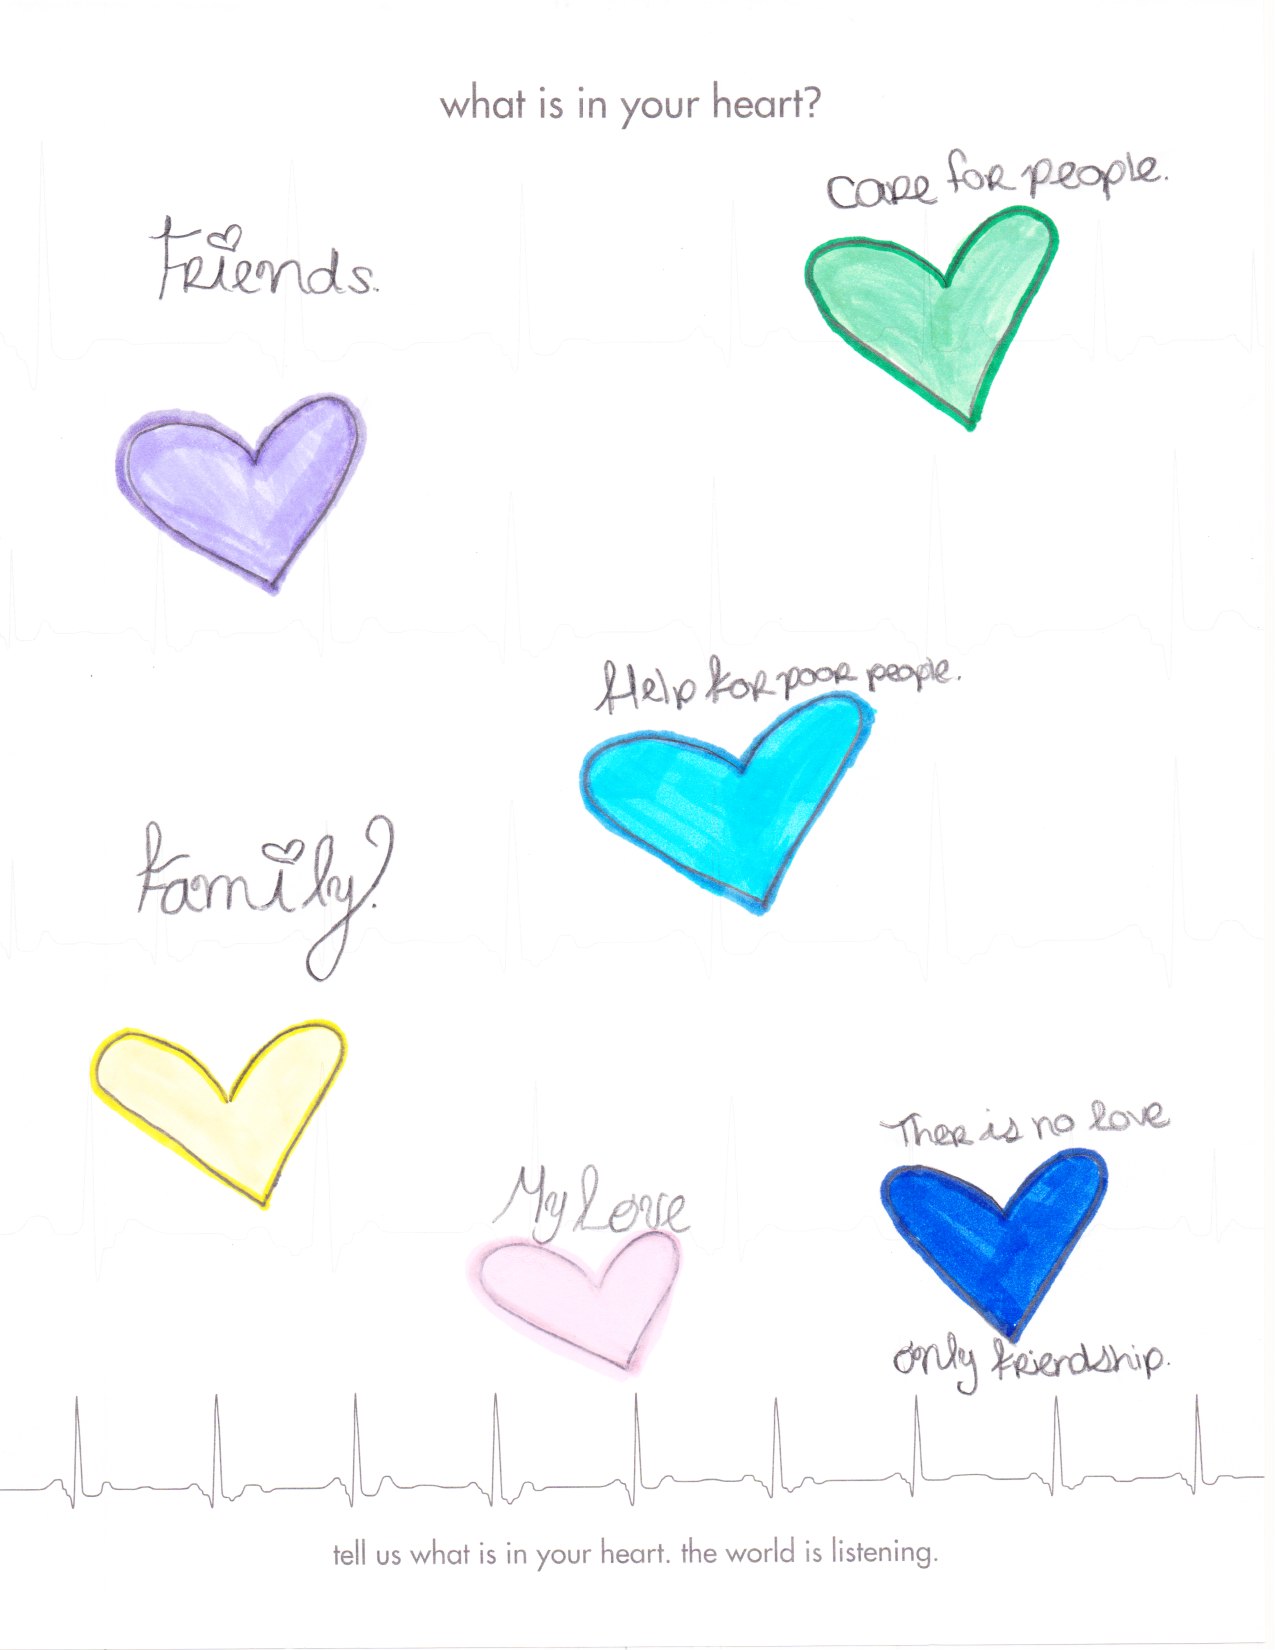 what is in your heart?
Care for people.
Friends.
Help for poor people.
Family?
There is no love
My Love
only friendship.
tell us what is in your heart. the world is listening.